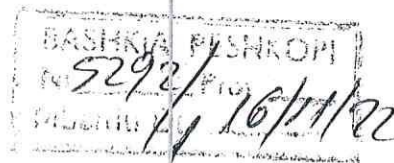 BASHKIA PESHKOPI
Nr. 5292/1 Prot
16/11/22